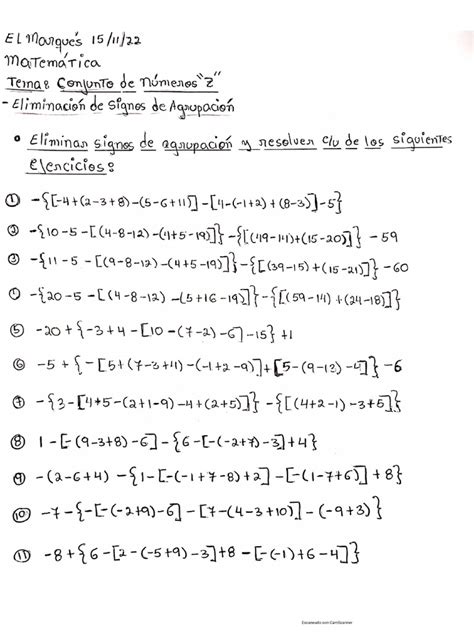 El Marqués 15/11/22
Matemática
Tema: Conjunto de números "Z"
- Eliminación de Signos de Agrupación
• Eliminar signos de agrupación y resolver c/u de los siguientes
ejercicios:
① -{[-4+(2-3+8)-(5-6+11)]-[4-(-1+2)+(8-3)]-5}
② -{10-5-[(4-8-12)-(4+5-19)]}-{[(49-14)+(15-20)]} -59
③ -{11-5-[(9-8-12)-(4+5-19)]}-{[(39-15)+(15-21)]} -60
④ -{20-5-[(4-8-12)-(5+16-19)]}-{[(59-14)+(24-18)]}
⑤ -20+{-3+4-[10-(7-2)-6]-15}+1
⑥ -5+{-[5+(7-3+11)-(-1+2-9)]+[5-(9-12)-4]}-6
⑦ -{3-[4+5-(2+1-9)-4+(2+5)]}-{[(4+2-1)-3+5]}
⑧ 1-[-(9-3+8)-6]-{6-[-(-2+7)-3]+4}
⑨ -(2-6+4)-{1-[-(-1+7-8)+2]-[-(1-7+6)]+8}
⑩ -7-{-[-(-2+9)-6]-[7-(4-3+10)]-(-9+3)}
⑪ -8+{6-[2-(-5+9)-3]+8-[-(-1)+6-4]}
Escaneado con CamScanner